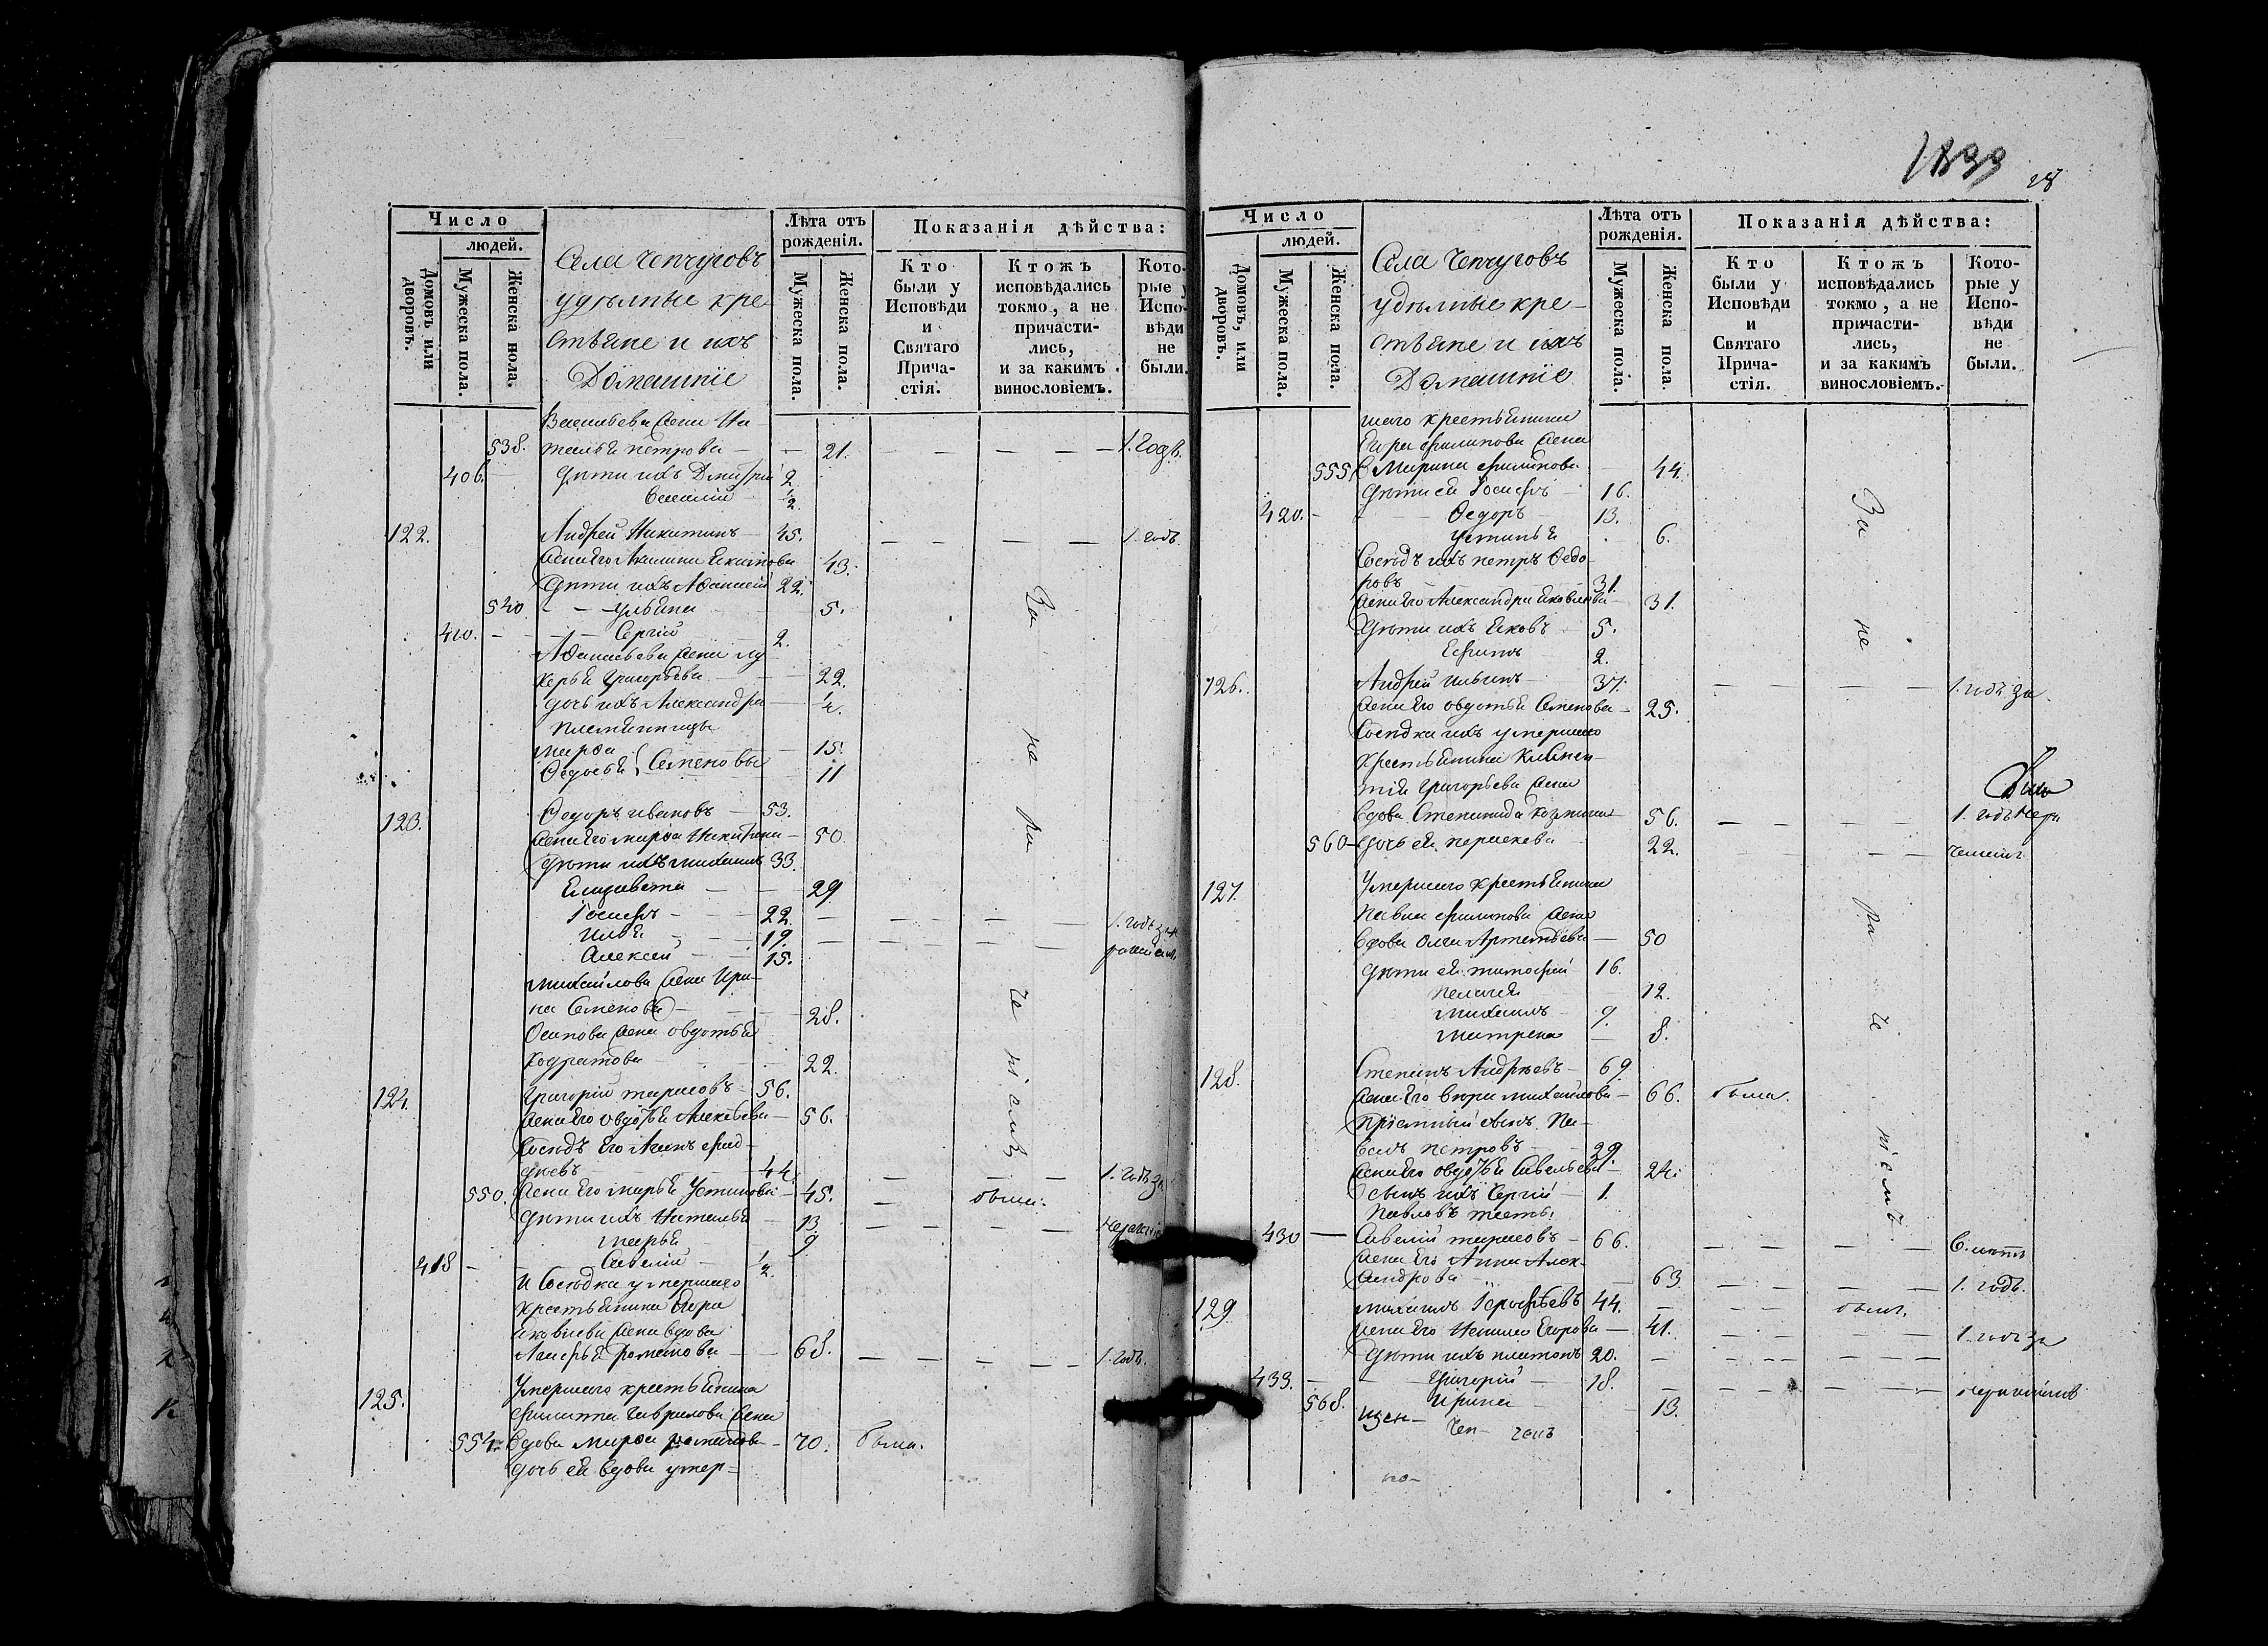 1833
28
Число
людей.
Домовъ или дворовъ.
Мужеска пола.
Женска пола.
Села Чепчуговъ
удѣльные кре
стьяне и ихъ
Домашніе
Лѣта отъ
рожденія.
Мужеска пола.
Женска пола.
Показанія дѣйства:
Кто
были у
Исповѣди
и
Святаго
Прича-
стія.
Ктожъ
исповѣдались
токмо, а не
причасти-
лись,
и за какимъ
винословіемъ.
Кото-
рые у
Испо-
вѣди
не
были.
Васильева жена На
538. талья петрова 21. 1. годъ.
406. дѣти ихъ Дмитрій 2
Василій ½
122. Андрей Никитинъ 45. 1. годъ.
жена его Акилина Екимова 43.
Дѣти ихъ Афанасій 22.
520 ульяна 5.
410. Сергій 2.
Афанасьева жена лу
керья Григорьева 22.
дочь ихъ Александра ½.
племянницы
марфа 15.
Федосья Семеновы 11
123. Федоръ ивановъ 53.
жена его марфа Никитина 50.
дѣти ихъ михаилъ 33.
Елизавета 29
Іосифъ 22. 1. годъ за
Илья 19.
Алексей 15.
михайлова жена Ири
на Семенова 28.
Осипова жена овдотья
Кодратова 22.
124. Григорій тарасовъ 56.
жена его овдотья Алексѣева 56.
Сосѣдъ его
44. 1. годъ за
550. жена его марья Устинова 45. была.
дѣти ихъ Наталья 13
марья 9
418 Савелій ½.
и Сосѣдка умершаго
крестьянина
Яковлева жена вдова
романова 68. 1. годъ.
125. Умершаго крестьянина
филиппа гаврилова жена
554. вдова марфа романова 70. была.
дочь ея вдова умер-
За не ра че ніемъ
Число
людей.
Домовъ, или дворовъ.
Мужеска пола.
Женска пола.
Села Чепчуговъ
удѣльные кре-
стьяне и ихъ
Домашніе
Лѣта отъ
рожденія.
Мужеска пола.
Женска пола.
Показанія дѣйства:
Кто
были у
Исповѣди
и
Святаго
Прича-
стія.
Ктожъ
исповѣдались
токмо, а не
причасти-
лись,
и за какимъ
винословіемъ.
Кото-
рые у
Испо-
вѣди
не
были.
шаго крестьянина
Егора филипова жена
555. Марина филипова 44.
Дѣти ея Іосифъ 16.
420. Федоръ 13.
устинья 6.
Сосѣдъ ихъ петръ Федо
ровъ 31.
жена его Александра Яковлева 31.
Дѣти ихъ Яковъ 5.
Ефимъ 2.
126. Андрей ильинъ 37. 1. годъ за
жена его овдотья Семенова 25.
Сосѣдка ихъ умершаго
крестьянина
Григорьева жена
вдова Степанида козмина 56. 1. годъ нера
560 дочь ея парасковья 22. ченіемъ
127. Умершаго крестьянина
Павла филипова жена
вдова Артемьева 50
дѣти ея тимофей 16.
пелагея 12.
михаилъ 9.
матрена 8.
128. Степанъ Андреевъ 69.
жена его михайлова 66. была.
Пріемный сынъ Па-
велъ петровъ 29.
жена его овдотья Савельева 24.
сынъ ихъ Сергій 1.
Павловъ тесть
430 Савелій тарасовъ 66. 6. лѣтъ
жена его Анна Алек-
сандрова 63 1. годъ.
129 михаилъ 44. былъ.
жена его Егорова 41. 1. годъ за
Дѣти ихъ платонъ 20.
433. Григорій 18. нераченіемъ
568. Ирина 13.
За не ра че ніемъ